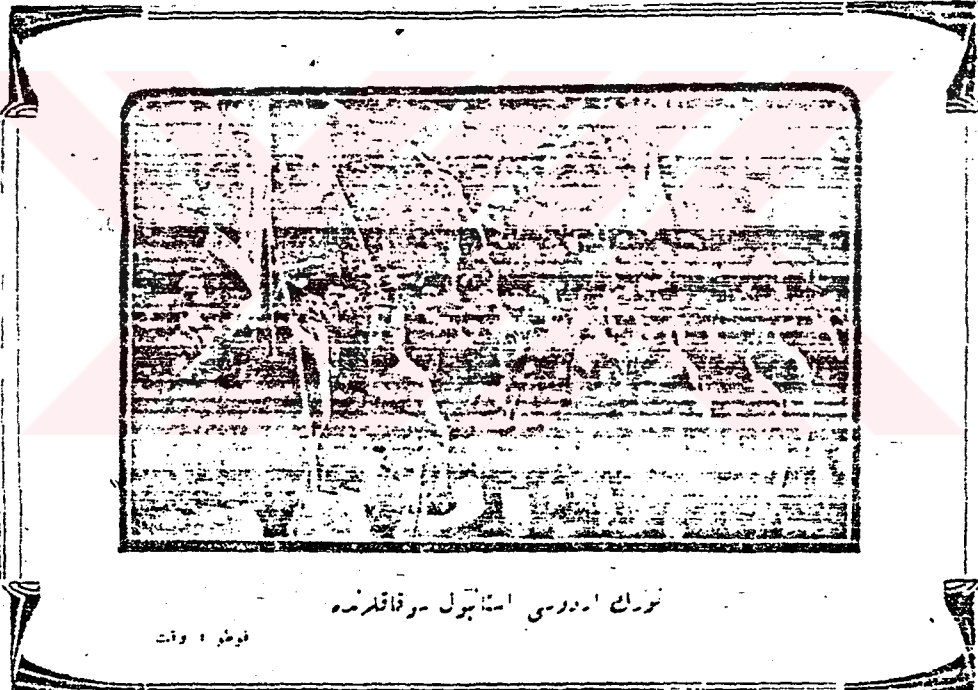 تورك اردوسی استانبول سوقاقلرنده
فوطو : وقت